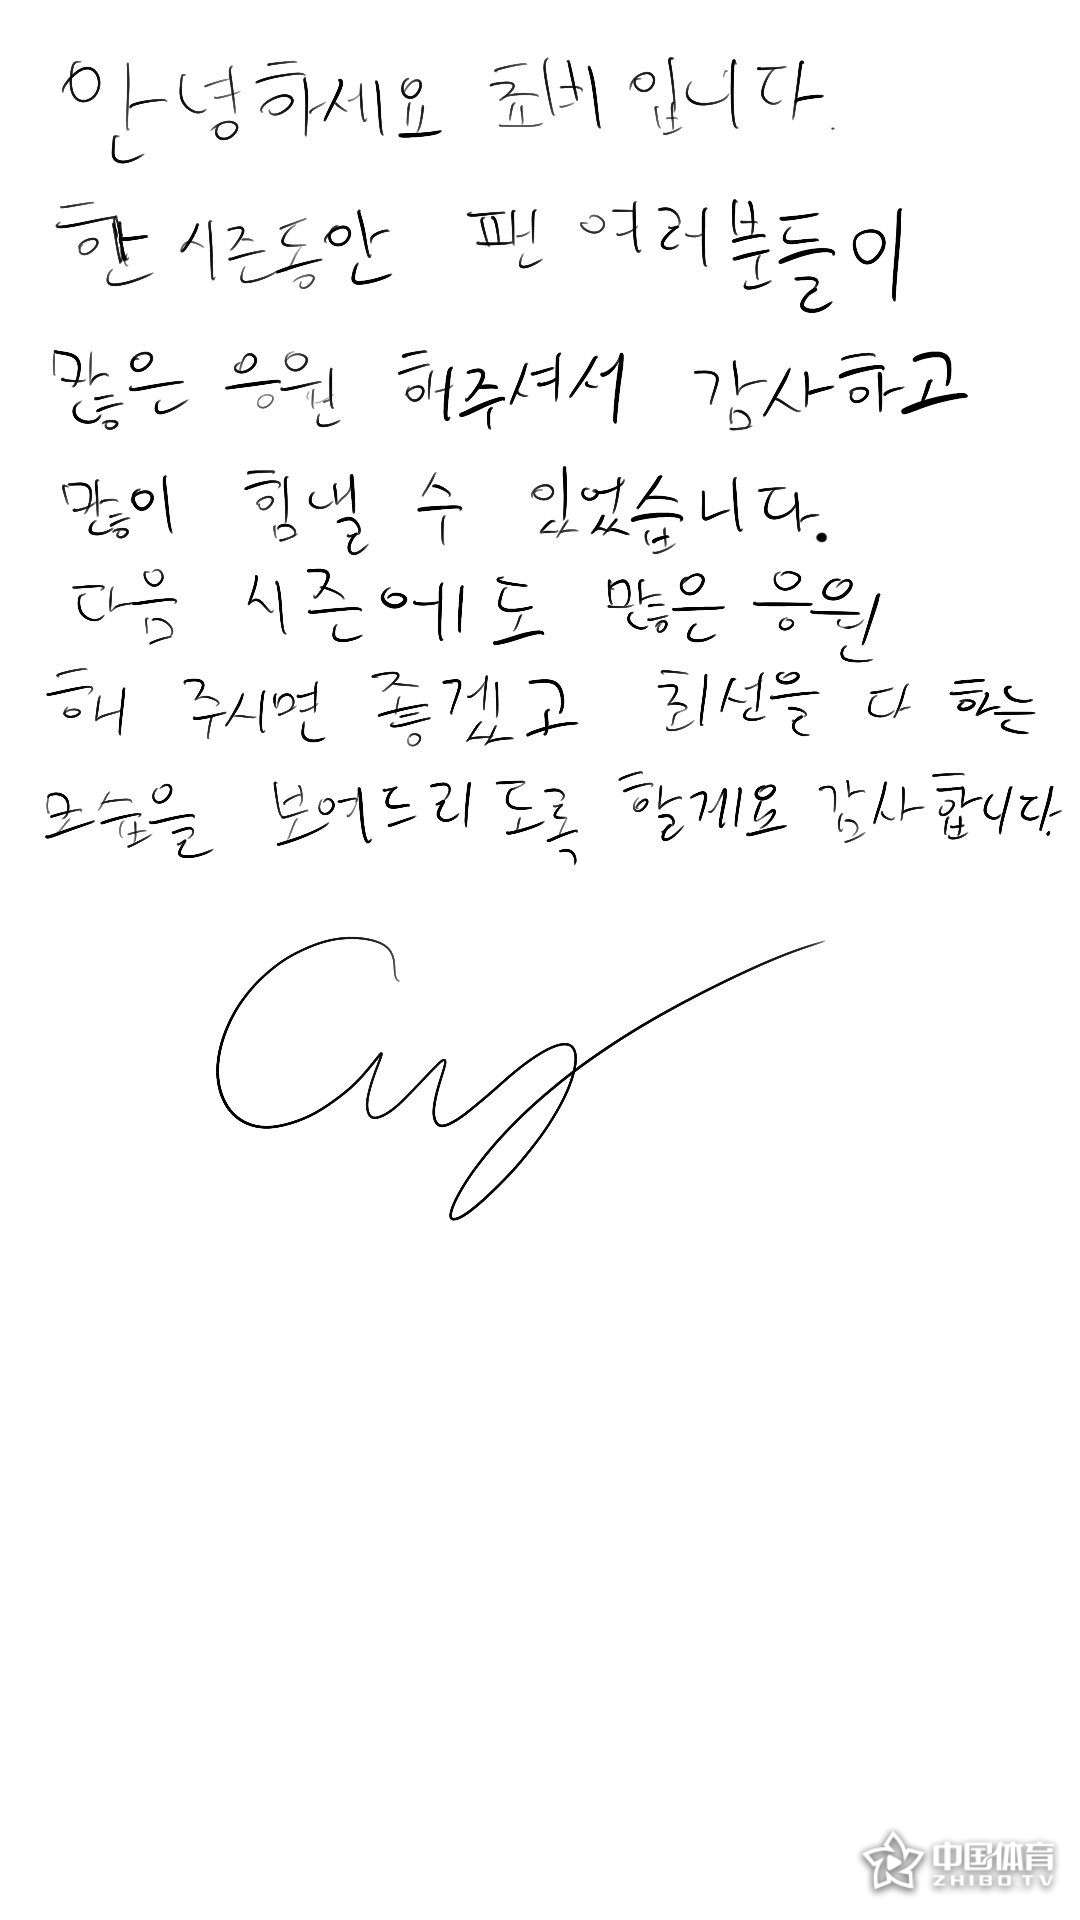 안녕하세요 쵸비입니다.
한 시즌동안 팬 여러분들이
많은 응원 해주셔서 감사하고
많이 힘낼 수 있었습니다.
다음 시즌에도 많은 응원
해 주시면 좋겠고 최선을 다 하는
모습을 보여드리도록 할게요 감사합니다.
中国体育
ZHIBO.TV